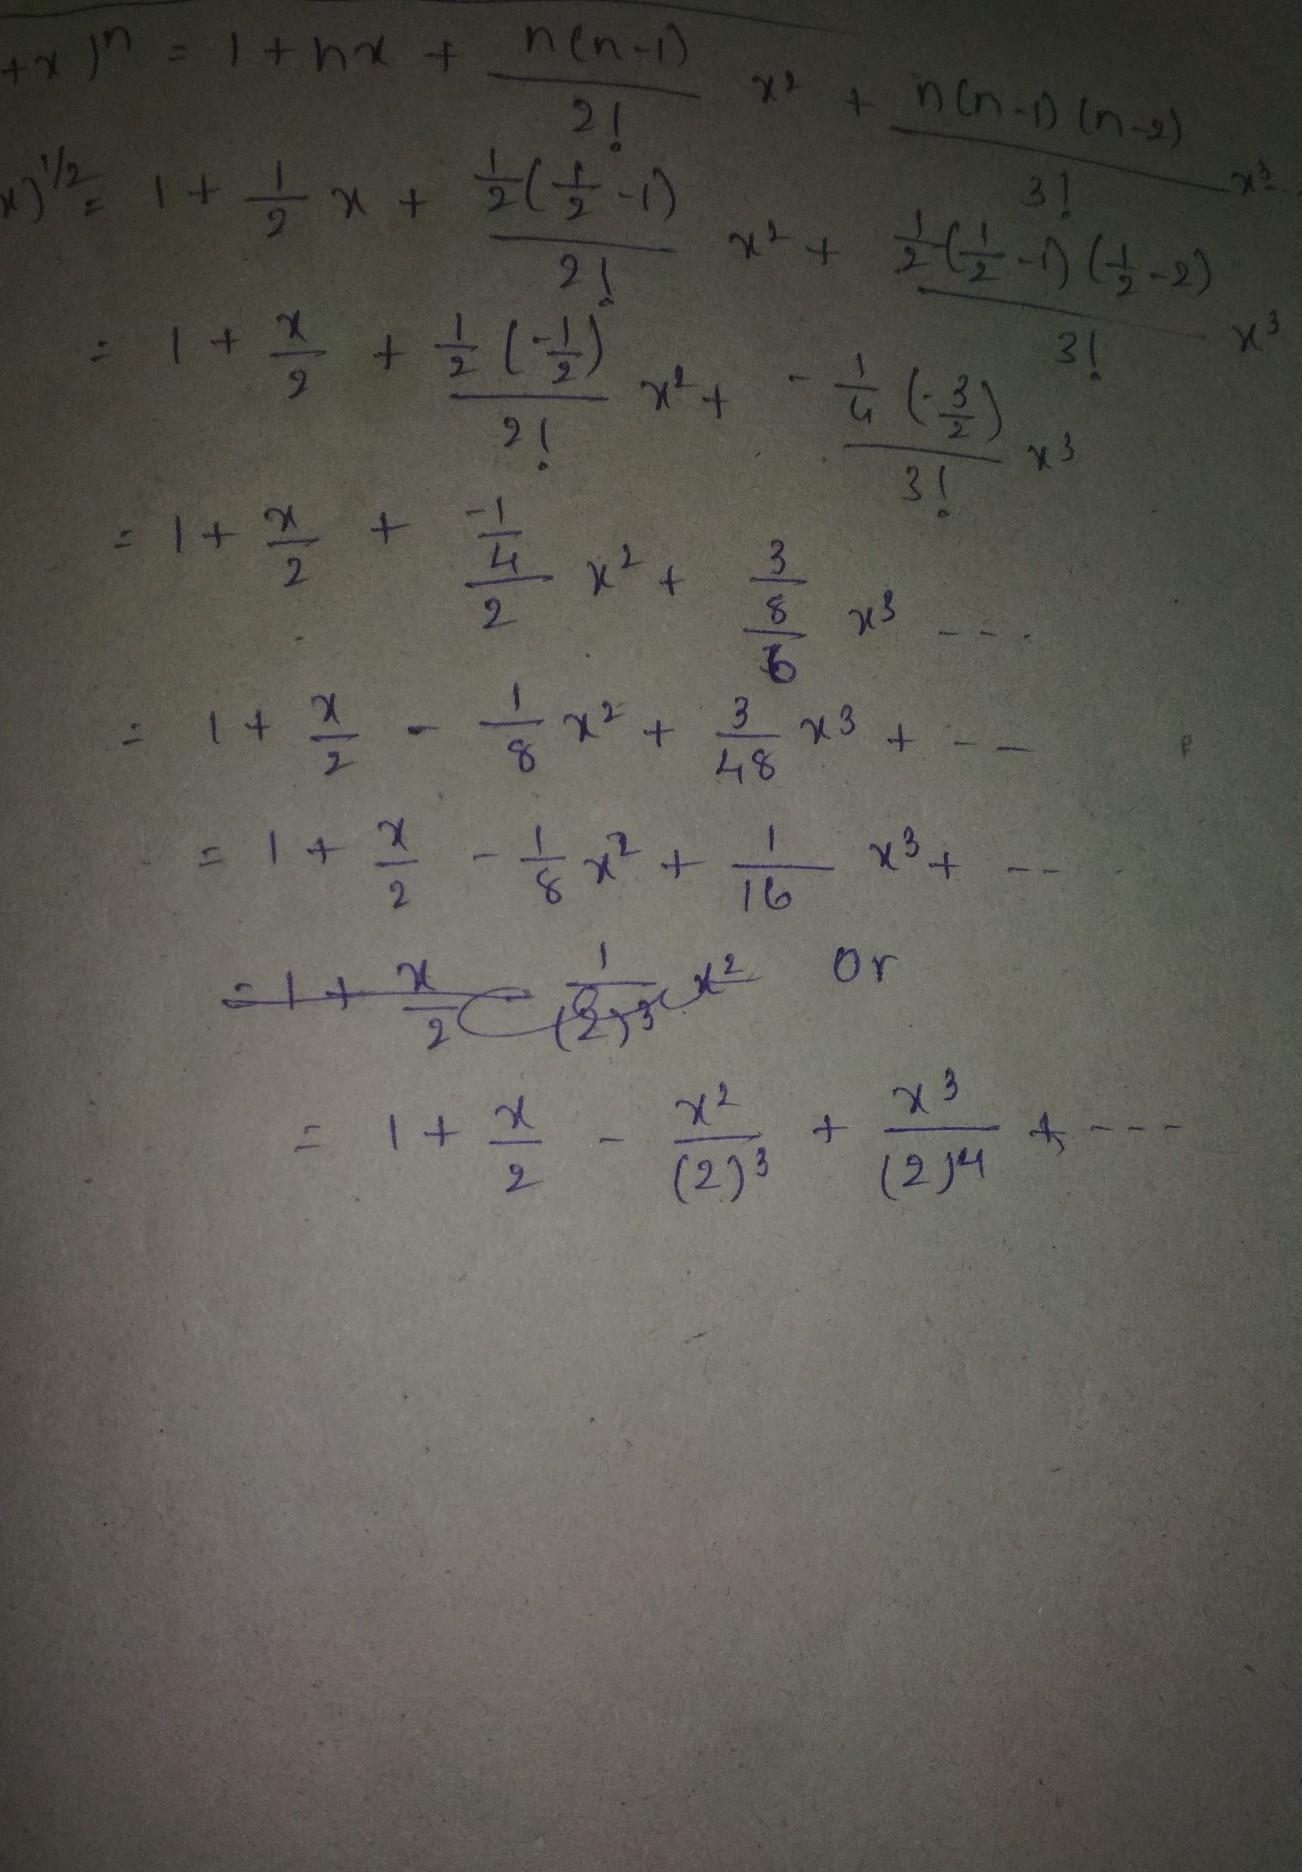 +x)ⁿ = 1 + nx + n(n-1)/2! x² + n(n-1)(n-2)/3! x³ - -
x)^1/2 = 1 + 1/2 x + 1/2(1/2 -1)/2! x² + 1/2(1/2 -1)(1/2 -2)/3! x³
= 1 + x/2 + 1/2(-1/2)/2! x² + -1/4(-3/2)/3! x³
= 1 + x/2 + -1/4/2 x² + 3/8/6 x³ - - -
= 1 + x/2 - 1/8 x² + 3/48 x³ + - -
= 1 + x/2 - 1/8 x² + 1/16 x³ + - -
= 1 + x/2 - 1/(2)³ x² Or
= 1 + x/2 - x²/(2)³ + x³/(2)⁴ + - - -